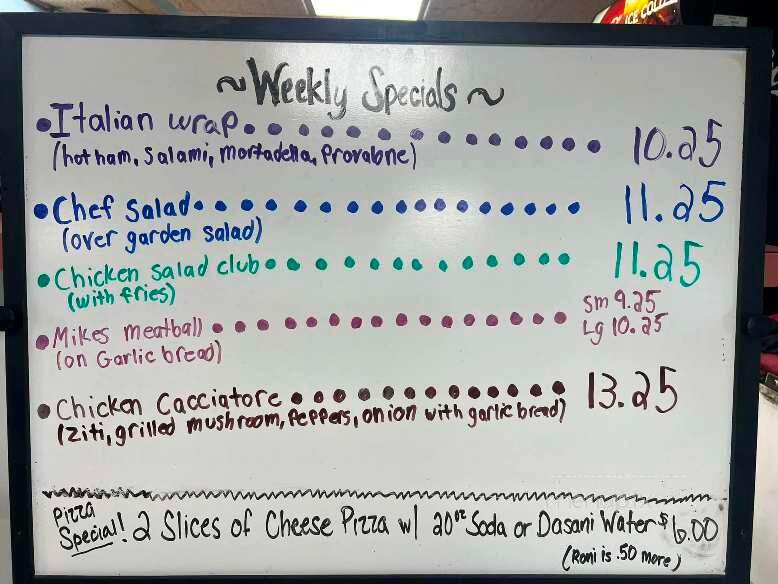 ICE COLD
~Weekly Specials~
•Italian wrap.............. 10.25
(hot ham, Salami, mortadella, Provalone)
•Chef Salad............... 11.25
(over garden salad)
•Chicken salad club............ 11.25
(with fries)
•Mikes meatball.............. Sm 9.25
Lg 10.25
(on Garlic bread)
•Chicken Cacciatore............ 13.25
(Ziti, grilled mushroom, Peppers, onion with garlic bread)
Pizza Special! 2 Slices of Cheese Pizza w/ 20oz Soda or Dasani Water $6.00
(Roni is .50 more)